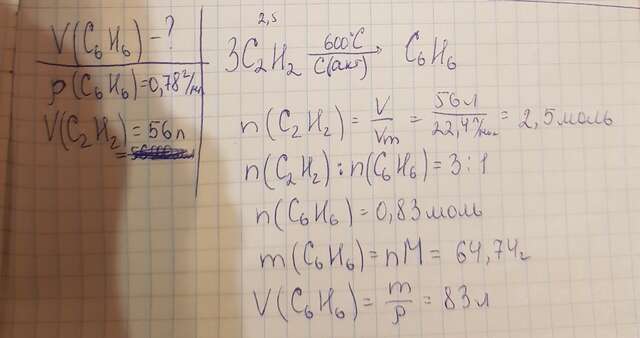 V(C₆H₆) - ?
ρ(C₆H₆) = 0,78 г/мл
V(C₂H₂) = 56 л
2,5
3C₂H₂ 600°C C(акт) → C₆H₆
n(C₂H₂) = V/Vm = 56л/22,4 л/моль = 2,5 моль
n(C₂H₂) : n(C₆H₆) = 3 : 1
n(C₆H₆) = 0,83 моль
m(C₆H₆) = nM = 64,74 г
V(C₆H₆) = m/ρ = 83 л